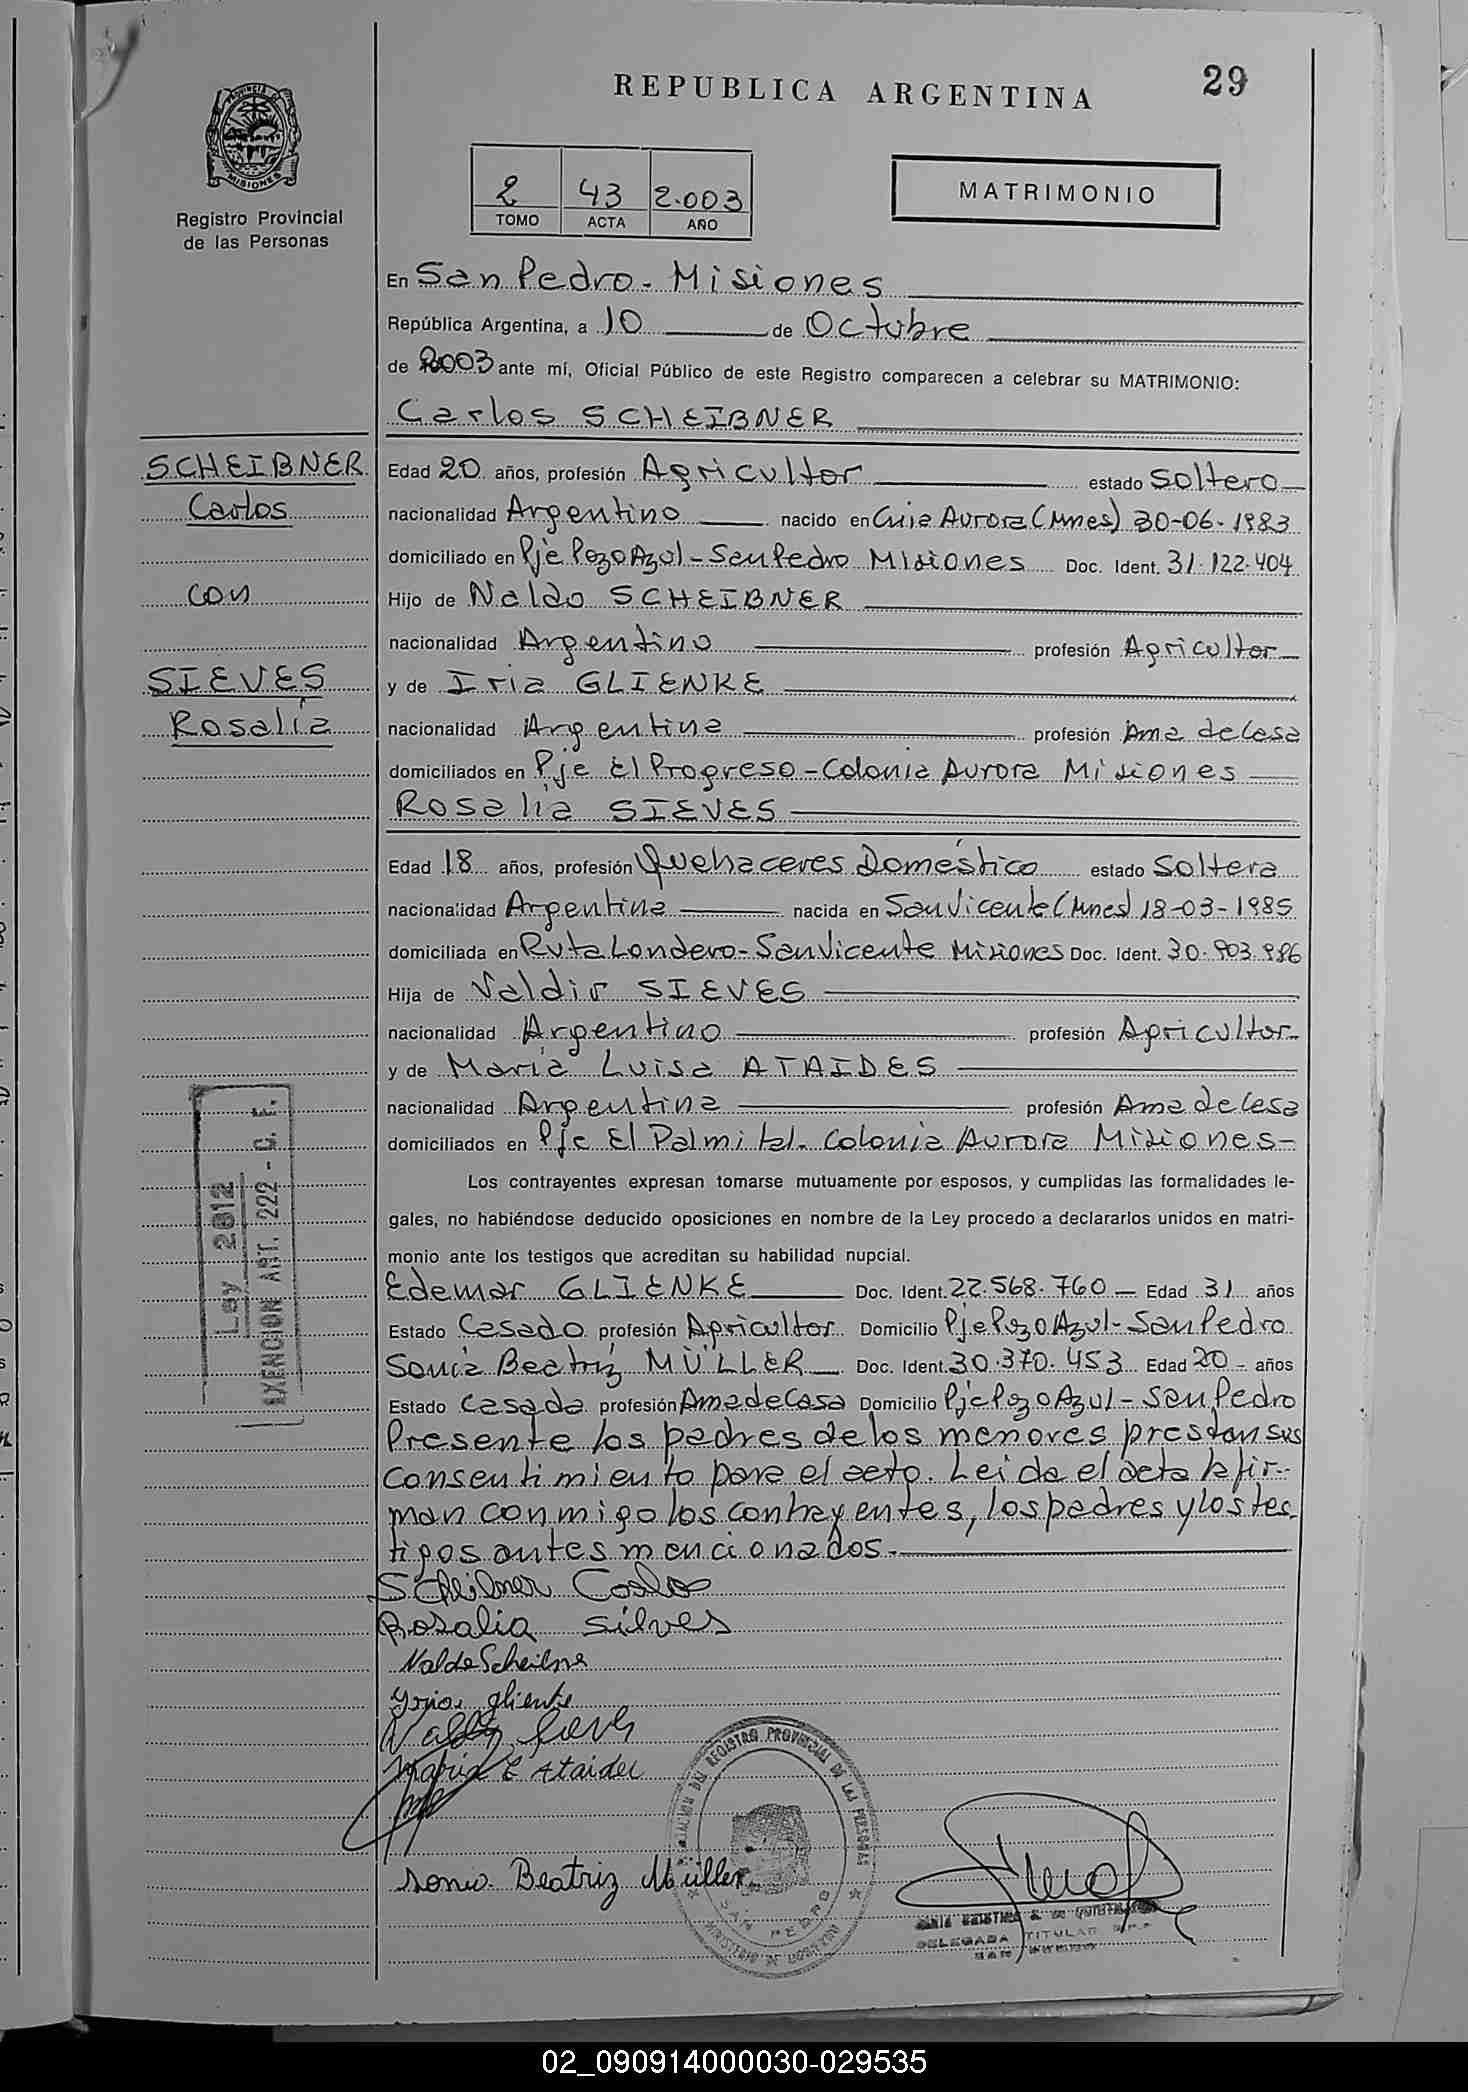 29
REPUBLICA ARGENTINA
PROVINCIA DE
MISIONES
Registro Provincial
de las Personas
2 43 2.003
TOMO ACTA AÑO
MATRIMONIO
En San Pedro - Misiones
República Argentina, a 10 de Octubre
de 2003 ante mí, Oficial Público de este Registro comparecen a celebrar su MATRIMONIO:
Carlos SCHEIBNER
SCHEIBNER
Carlos
con
SIEVES
Rosalía
Edad 20 años, profesión Agricultor estado Soltero
nacionalidad Argentino nacido en Cnia Aurora (Mnes) 30-06-1983
domiciliado en Pje Pozo Azul - San Pedro Misiones Doc. Ident. 31.122.404
Hijo de Naldo SCHEIBNER
nacionalidad Argentino profesión Agricultor
y de Iria GLIENKE
nacionalidad Argentina profesión Ama de Casa
domiciliados en Pje El Progreso - Colonia Aurora Misiones
Rosalía SIEVES
Edad 18 años, profesión Quehaceres Doméstico estado Soltera
nacionalidad Argentina nacida en San Vicente (Mnes) 18-03-1985
domiciliada en Ruta Londero - San Vicente Misiones Doc. Ident.
Hija de Valdir SIEVES
nacionalidad Argentino profesión Agricultor
y de María Luisa ATAIDES
nacionalidad Argentina profesión Ama de Casa
domiciliados en Pje El Palmital - Colonia Aurora Misiones -
Los contrayentes expresan tomarse mutuamente por esposos, y cumplidas las formalidades le-
gales, no habiéndose deducido oposiciones en nombre de la Ley procedo a declararlos unidos en matri-
monio ante los testigos que acreditan su habilidad nupcial.
Edemar GLIENKE Doc. Ident. 22.568.760 - Edad 31 años
Estado Casado profesión Agricultor Domicilio Pje Pozo Azul - San Pedro
Sonia Beatriz MÜLLER Doc. Ident. 30.370.453 Edad 20 - años
Estado Casada profesión Ama de Casa Domicilio Pje Pozo Azul - San Pedro
Presente los padres de los menores prestan sus
consentimiento para el acto. Leida el acta la fir-
man conmigo los contrayentes, los padres y los tes
tigos antes mencionados.
Ley 2812
EXENCION ART. 222 - C. F.
Scheibner Carlos
Rosalia Silves
Naldo Scheibne
Glienke
Maria L Ataides
Sonia Beatriz Müller
REGISTRO PROVINCIAL DE LAS PERSONAS
SAN PEDRO
MINISTERIO DE GOBIERNO
DELEGADA TITULAR
02_090914000030-029535